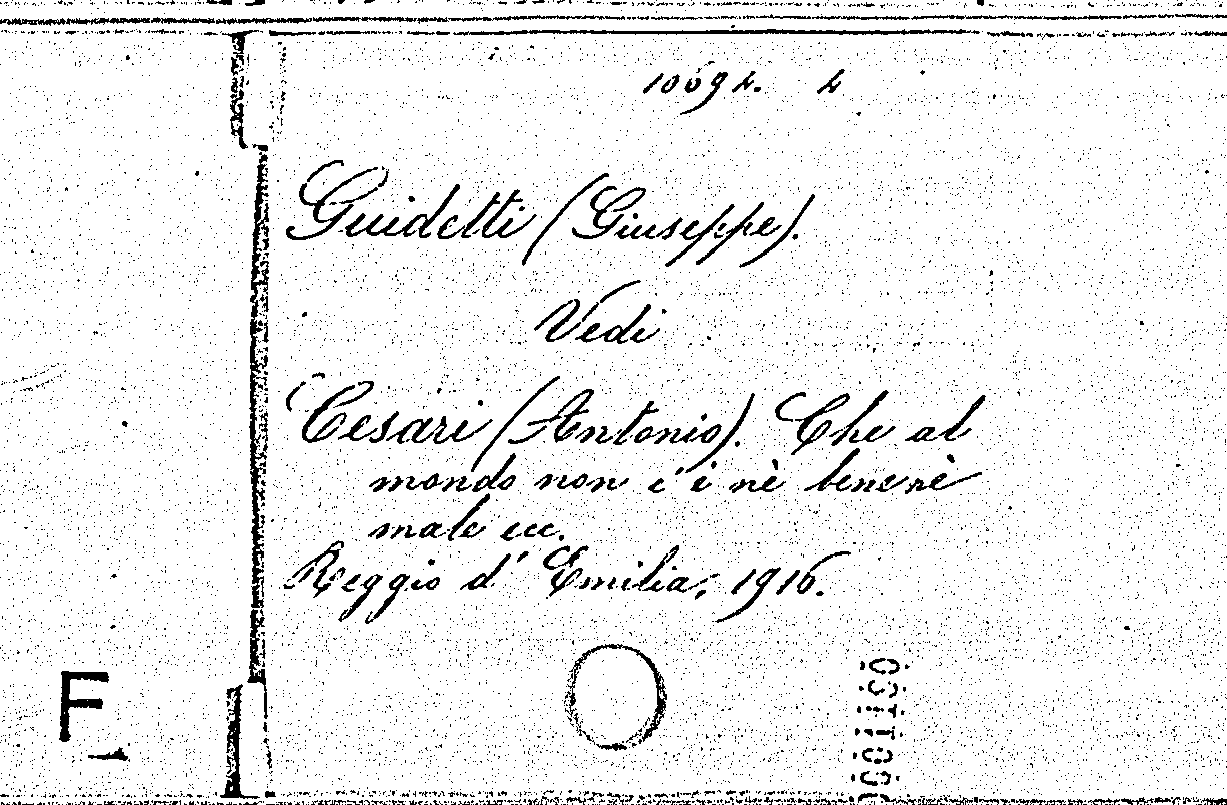 10694. 4
Guidetti (Giuseppe).
Vedi
Cesari (Antonio). Che al
mondo non c'è nè bene nè
male ecc.
Reggio d'Emilia, 1916.
F